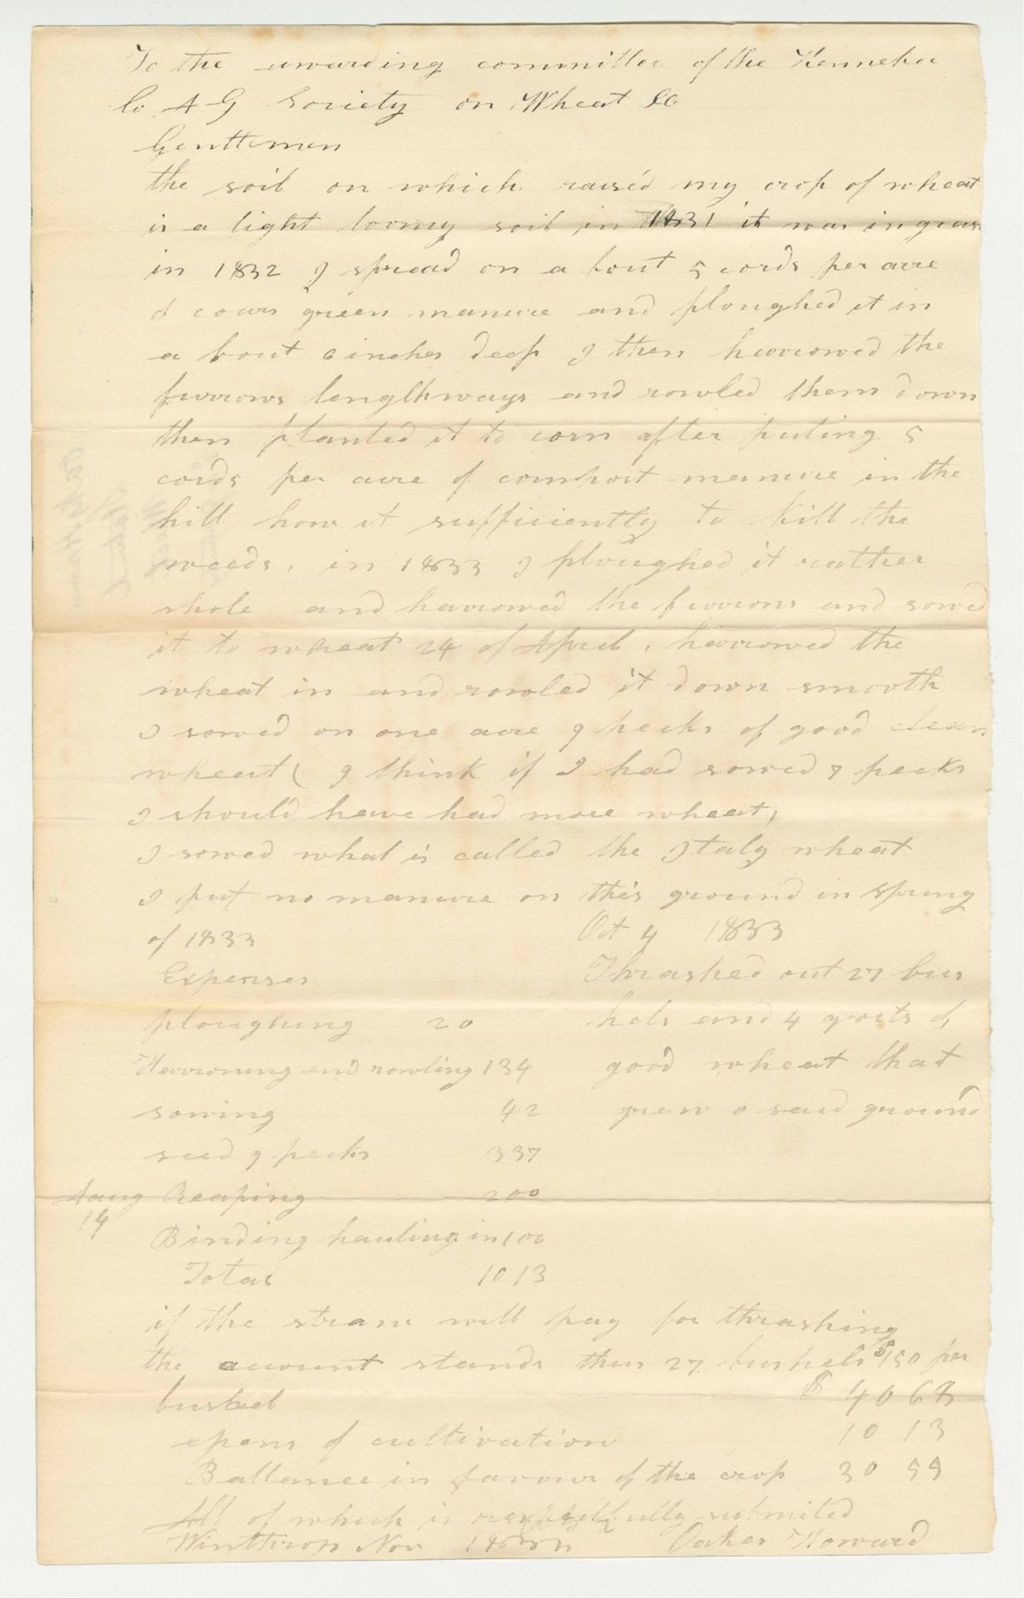 To the awarding committee of the Kennebec
Co. A G Society on Wheat &c
Gentlemen
the soil on which raisd my crop of wheat
is a light loomy soil in 1831 it was in grass
in 1832 I spread on a bout 5 cords per acre
of cours green manure and ploughed it in
a bout 6 inches deep I then harrowed the
furrows lengthways and rowled them down
then planted it to corn after puting 5
cords per acre of compost manure in the
hill howe it sufficiently to kill the
weeds, in 1833 I ploughed it rather
shole and harrowed the furrows and sowed
it to wheat 24 of April, harrowed the
wheat in and rowled it down smooth
I sowed on one acre 9 pecks of good clean
wheat ( I think if I had sowed 8 pecks
I should have had more wheat,
I sowed what is called the Italy wheat
I put no manure on this ground in spring
of 1833
Oct 4 1833
Thrashed out 27 bus
hels and 4 qorts of
good wheat that
grew o said ground
Expenses
ploughing 20
Harrowing and rowling 134
sowing 42
seed 9 pecks 337
Aaug 14 Reaping 200
Binding hauling in 100
Total 1013
if the straw will pay for thrashing
the account stands thus 27 bushels $150 per
bushel $ 40 68
expens of cultivation 10 13
Ballance in favour of the crop 30 55
All of which is respectfully submited
Winthrop Nov Oakes Howard